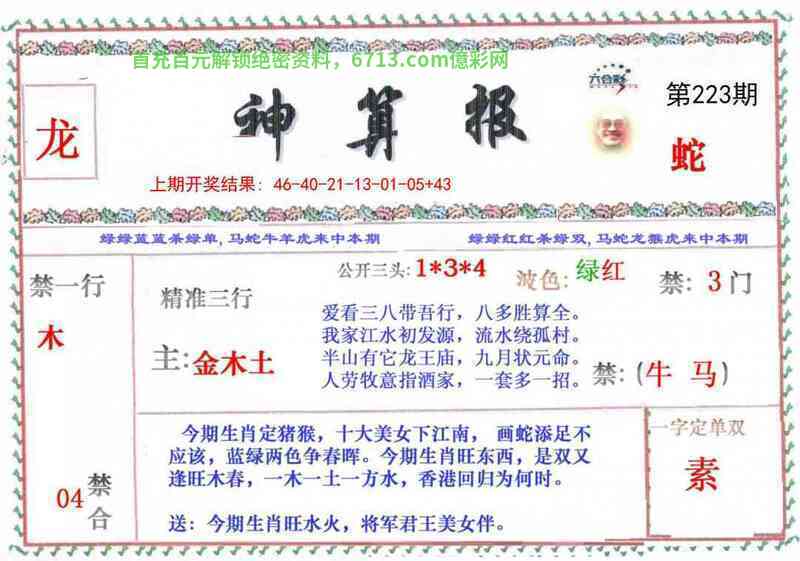 首充百元解锁绝密资料，6713.com億彩网
六合彩
第223期
龙
神算报
蛇
上期开奖结果：46-40-21-13-01-05+43
绿绿蓝蓝杀绿单,马蛇牛羊虎来中本期
绿绿红红杀绿双,马蛇龙猴虎来中本期
禁一行
木
04
禁合
精准三行
主:金木土
公开三头:1*3*4
波色:绿红
禁:3门
爱看三八带吾行，八多胜算全。
我家江水初发源，流水绕孤村。
半山有它龙王庙，九月状元命。
人劳牧意指酒家，一套多一招。
禁:(牛 马)
今期生肖定猪猴，十大美女下江南， 画蛇添足不
应该，蓝绿两色争春晖。今期生肖旺东西，是双又
逢旺木春，一木一土一方水，香港回归为何时。
送：今期生肖旺水火，将军君王美女伴。
一字定单双
素